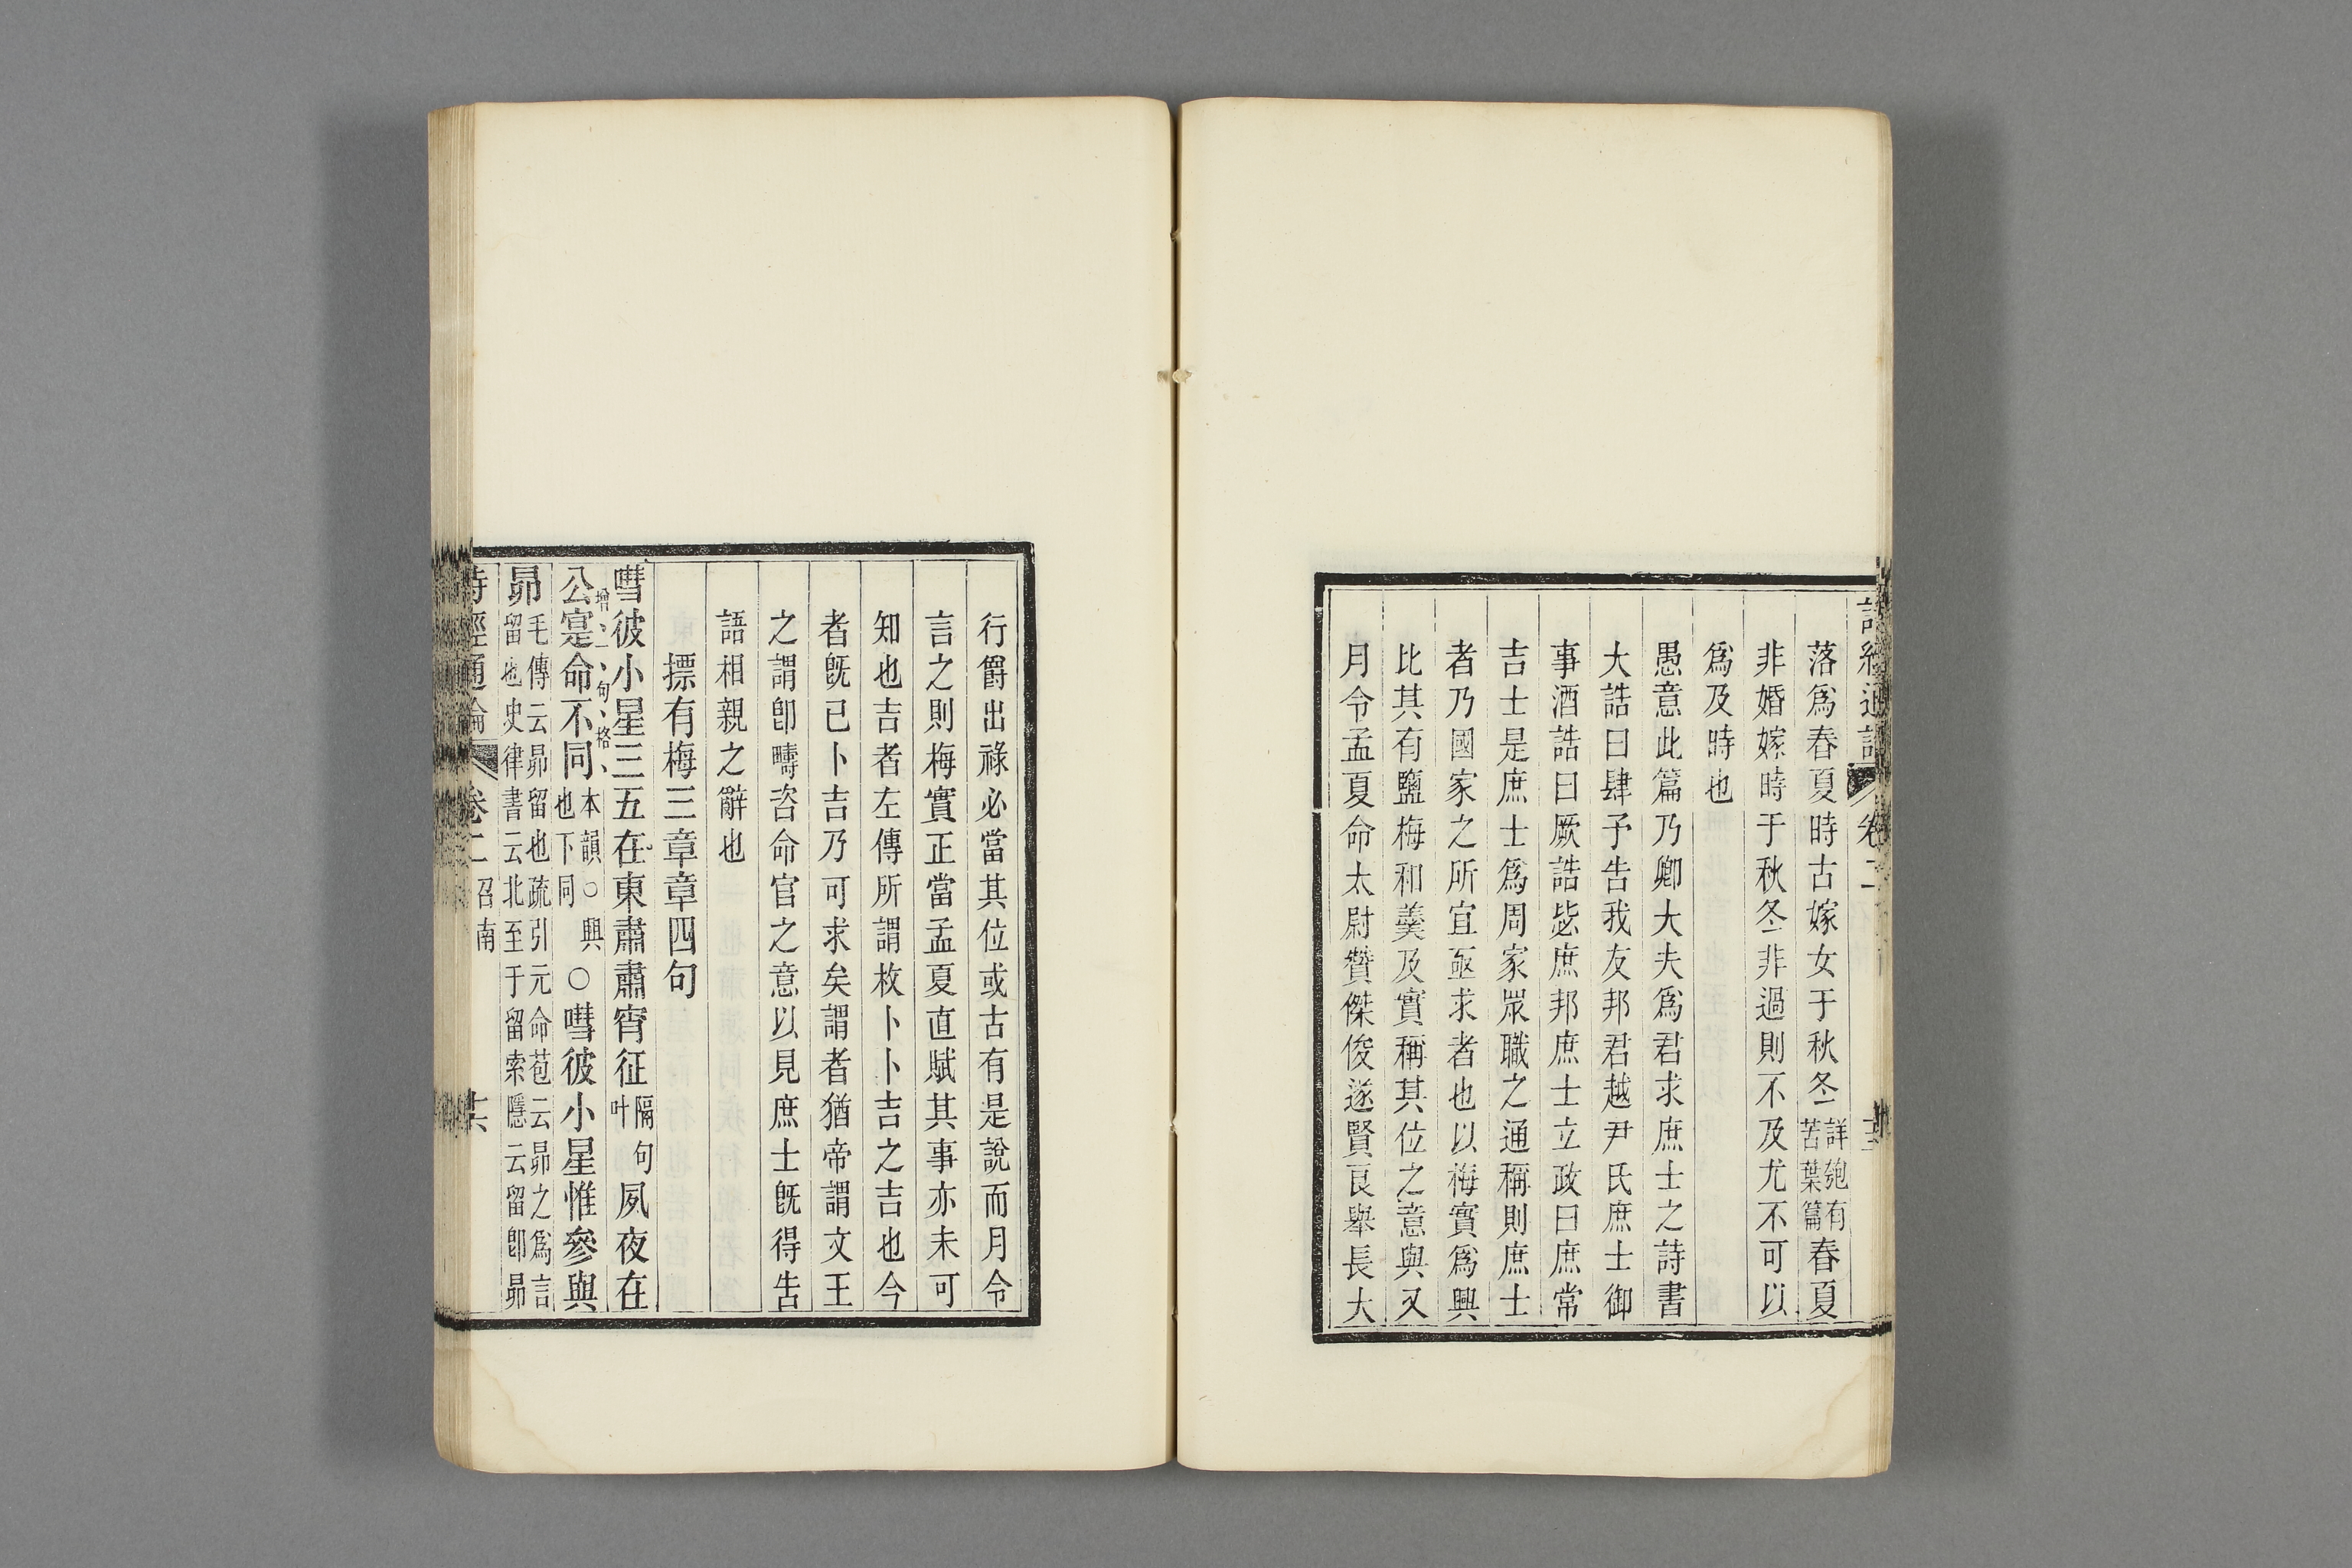 詩經通論 卷二
落爲春夏時古嫁女于秋冬詳匏有苦葉篇春夏
非婚嫁時于秋冬非過則不及尤不可以
爲及時也
愚意此篇乃卿大夫爲君求庶士之詩書
大誥曰肆予告我友邦君越尹氏庶士御
事酒誥曰厥誥毖庶邦庶士立政曰庶常
吉士是庶士爲周家眾職之通稱則庶士
者乃國家之所宜亟求者也以梅實爲興
比其有鹽梅和羹及實稱其位之意與又
月令孟夏命太尉贊傑俊遂賢良舉長大
行爵出祿必當其位或古有是說而月令
言之則梅實正當孟夏直賦其事亦未可
知也吉者左傳所謂枚卜卜吉之吉也今
者旣已卜吉乃可求矣謂者猶帝謂文王
之謂卽疇咨命官之意以見庶士旣得告
語相親之辭也
摽有梅三章章四句
嘒彼小星三五在東肅肅宵征隔句叶夙夜在
公寔命不同本韻○興也下同○嘒彼小星惟參與
增 句 格
昴毛傳云昴留也疏引元命苞云昴之爲言留也史律書云北至于留索隱云留卽昴
詩經通論 卷二 召南 十六